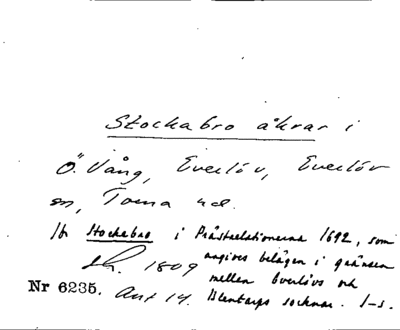 Stockabro åkrar i
Ö. Vång, Everlöv, Everlöv
sn, Torna hd.
Jfr Stockabro i Prästrelationerna 1692, som
angives belägen i gränsen
sk. 1809
mellan Everlövs och
Nr 6235. Ant 14.
Blentarps socknar. I-s.